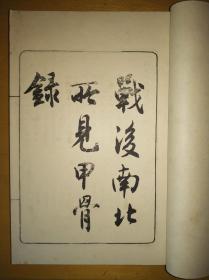 戰後南北
所見甲骨
録